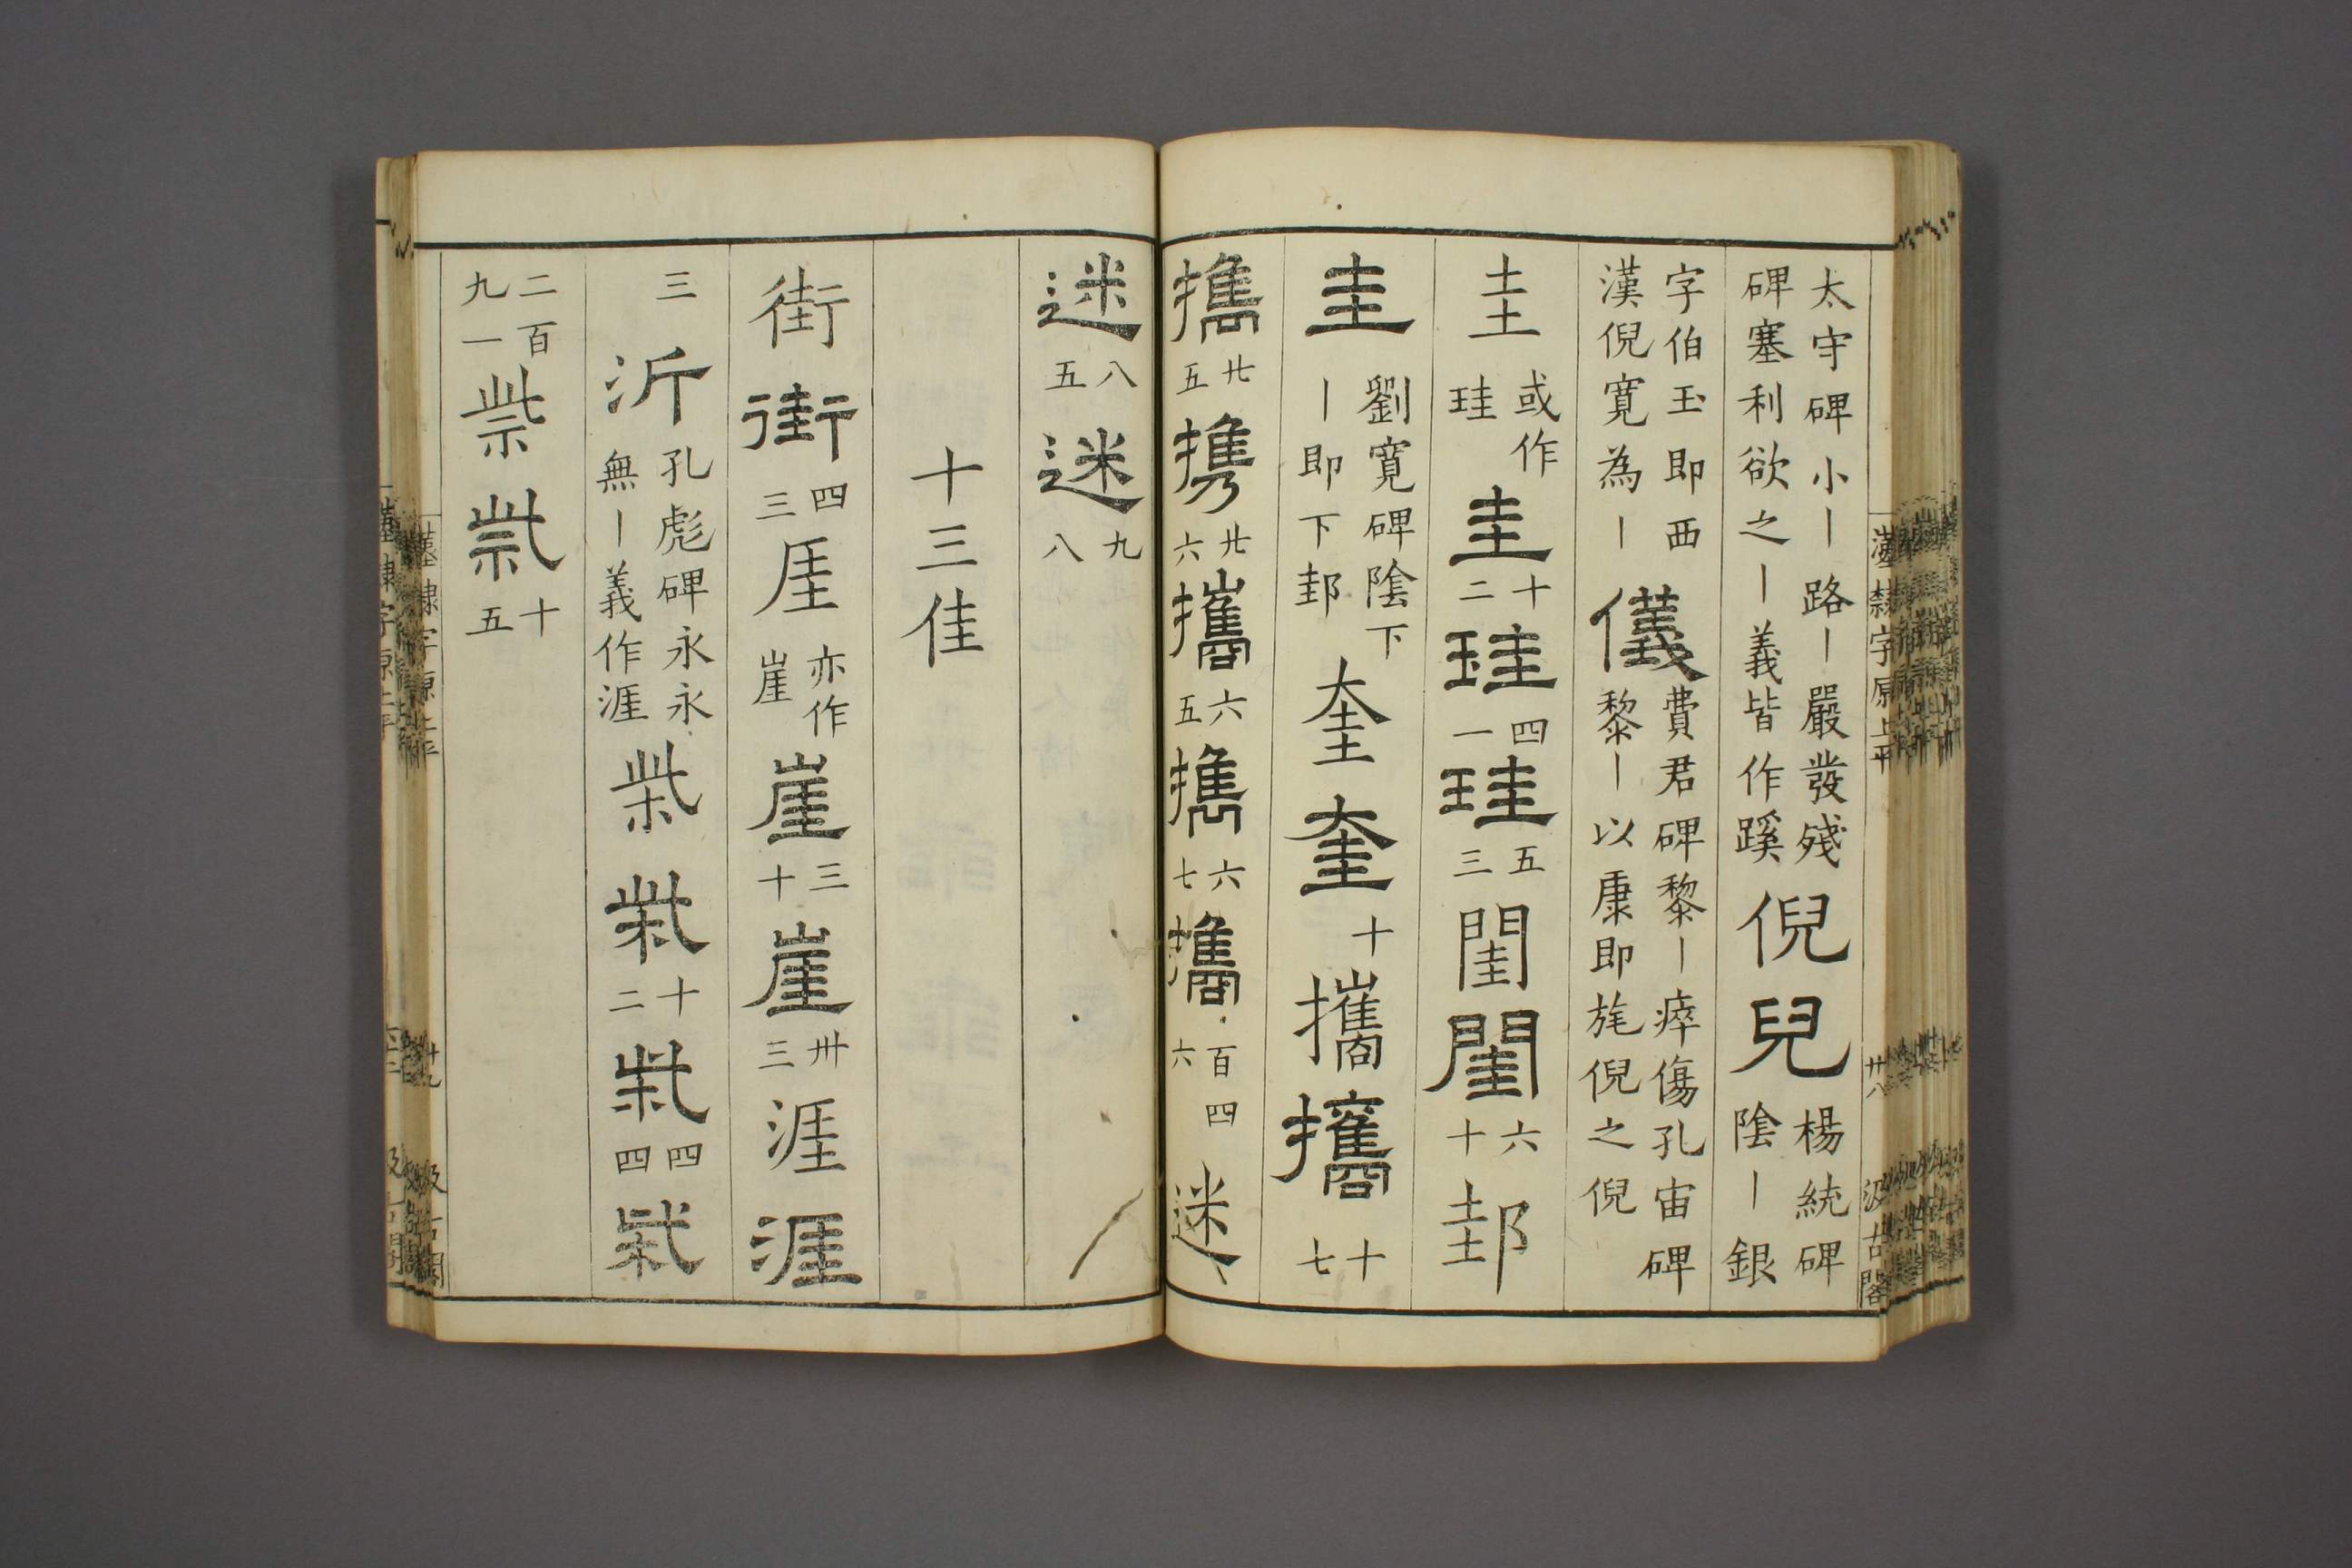 太守碑小丨路丨嚴發殘
碑塞利欲之丨義皆作蹊
倪
兒
楊統碑
陰丨銀
字伯玉即西
漢倪寬為丨
儀
費君碑黎丨瘁傷孔宙碑
黎丨以康即旄倪之倪
圭
或作
珪
圭
十
二
珪
四
一
珪
五
三
閨
閨
六
十
邽
圭
劉寬碑陰下
丨即下邽
奎
奎
十
攜
攜
十
七
攜
廿
五
攜
廿
六
攜
六
五
攜
六
七
攜
百四
六
迷
漢隸字原上平
廿八
汲古閣
迷
八
五
迷
九
八
十三佳
街
街
四
三
厓
亦作
崖
崖
三
十
崖
卅
三
涯
涯
三
沂
孔彪碑永永
無丨義作涯
柴
柴
十
二
柴
四
四
柴
二百
九一
祡
祡
十
五
漢隸字原上平
廿九
汲古閣